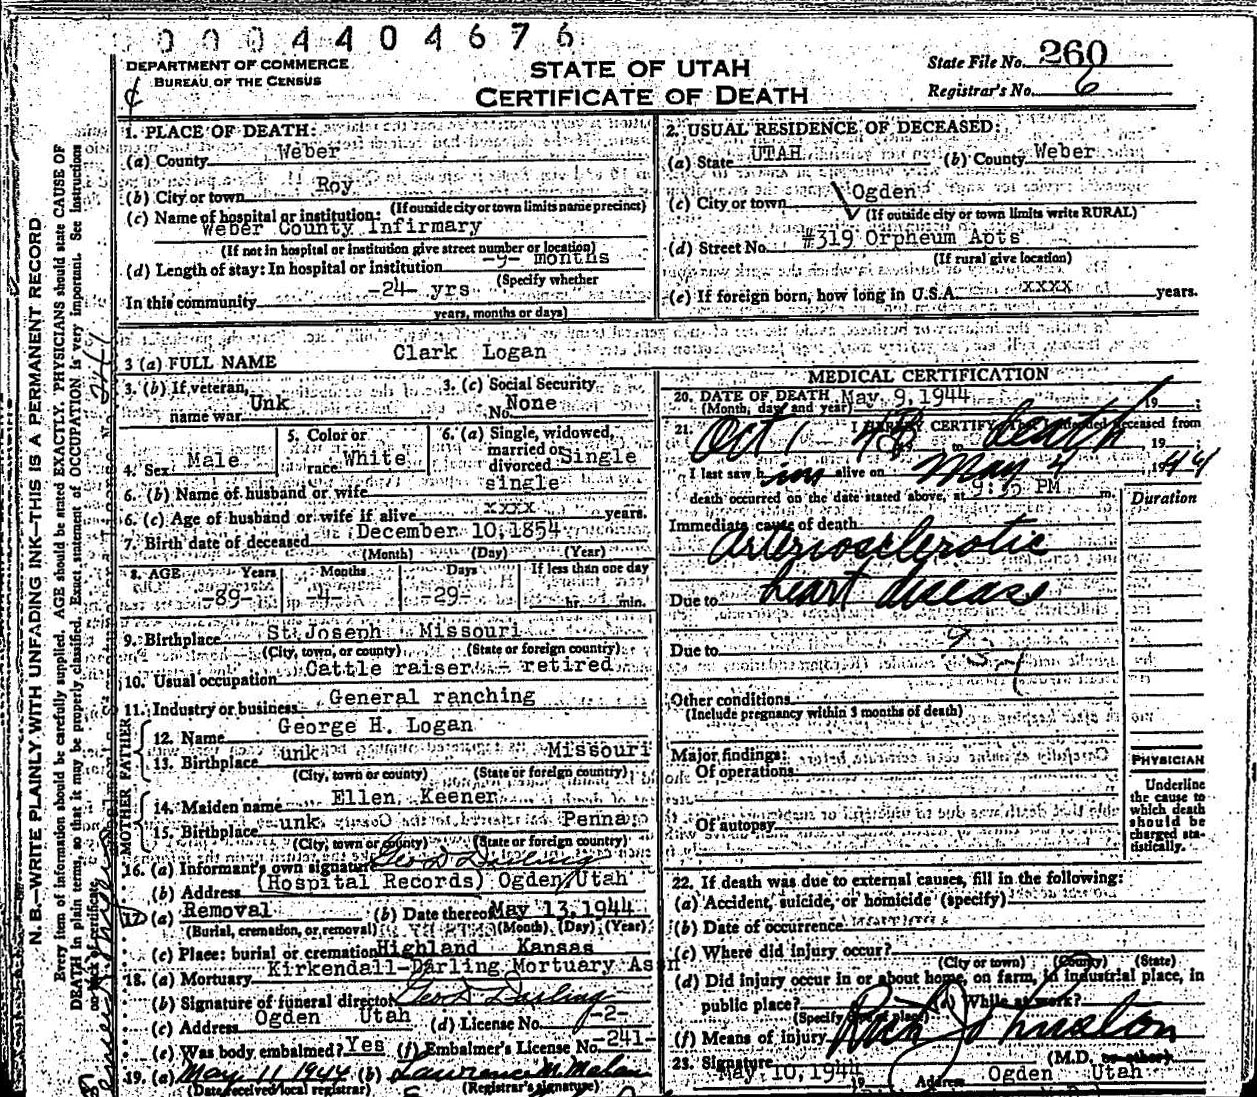 0 0 0 4 4 0 4 6 7 6
DEPARTMENT OF COMMERCE
BUREAU OF THE CENSUS
STATE OF UTAH
CERTIFICATE OF DEATH
State File No. 260
Registrar's No. 6
N. B.—WRITE PLAINLY WITH UNFADING INK—THIS IS A PERMANENT RECORD
Every item of information should be carefully supplied. AGE should be stated EXACTLY. PHYSICIANS should state CAUSE OF
DEATH in plain terms, so that it may be properly classified. Exact statement of OCCUPATION is very important. See instructions
on back of certificate.
1. PLACE OF DEATH:
(a) County Weber
(b) City or town Roy
(If outside city or town limits name precinct)
(c) Name of hospital or institution:
Weber County Infirmary
(If not in hospital or institution give street number or location)
(d) Length of stay: In hospital or institution -9- months
(Specify whether
In this community -24- yrs
years, months or days)
2. USUAL RESIDENCE OF DECEASED:
(a) State UTAH (b) County Weber
(c) City or town Ogden
(If outside city or town limits write RURAL)
(d) Street No. #319 Orpheum Apts
(If rural give location)
(e) If foreign born, how long in U.S.A. xxxx years.
3 (a) FULL NAME Clark Logan
3. (b) If veteran, name war Unk
3. (c) Social Security No. None
4. Sex Male
5. Color or race White
6. (a) Single, widowed, married or divorced Single
6. (b) Name of husband or wife single
6. (c) Age of husband or wife if alive xxxx years.
7. Birth date of deceased December 10, 1854
(Month) (Day) (Year)
8. AGE Years Months Days If less than one day
-89- -4- -29- hr. min.
9. Birthplace St Joseph Missouri
(City, town, or county) (State or foreign country)
10. Usual occupation Cattle raiser - retired
11. Industry or business General ranching
FATHER
12. Name George H. Logan
13. Birthplace unk Missouri
(City, town or county) (State or foreign country)
MOTHER
14. Maiden name Ellen Keener
15. Birthplace unk Penna
(City, town or county) (State or foreign country)
16. (a) Informant's own signature Geo D Darling
(b) Address (Hospital Records) Ogden Utah
17. (a) Removal (b) Date thereof May 13, 1944
(Burial, cremation, or removal) (Month) (Day) (Year)
(c) Place: burial or cremation Highland Kansas
18. (a) Mortuary Kirkendall-Darling Mortuary Assn
(b) Signature of funeral director Geo D Darling
(c) Address Ogden Utah (d) License No. -2-
(e) Was body embalmed? Yes (f) Embalmer's License No. -241-
19. (a) May 11 1944 (b) Lawrence M. Malan
(Date received local registrar) (Registrar's signature)
MEDICAL CERTIFICATION
20. DATE OF DEATH May 9, 1944 19 ;
(Month, day and year)
21. I HEREBY CERTIFY that I attended deceased from
Oct 1 43 to death 19 ;
I last saw him alive on May 4, 1944
death occurred on the date stated above, at 9:35 PM m.
Duration
Immediate cause of death
arteriosclerotic
Due to heart disease
Due to
Other conditions
(Include pregnancy within 3 months of death)
Major findings:
Of operations
Of autopsy
PHYSICIAN
Underline
the cause to
which death
should be
charged sta-
tistically.
22. If death was due to external causes, fill in the following:
(a) Accident, suicide, or homicide (specify)
(b) Date of occurrence
(c) Where did injury occur?
(City or town) (County) (State)
(d) Did injury occur in or about home, on farm, in industrial place, in
public place? (e) While at work?
(Specify type of place)
(f) Means of injury
23. Signature Rich Johnston (M.D. or other)
May 10, 1944 19 Address Ogden Utah